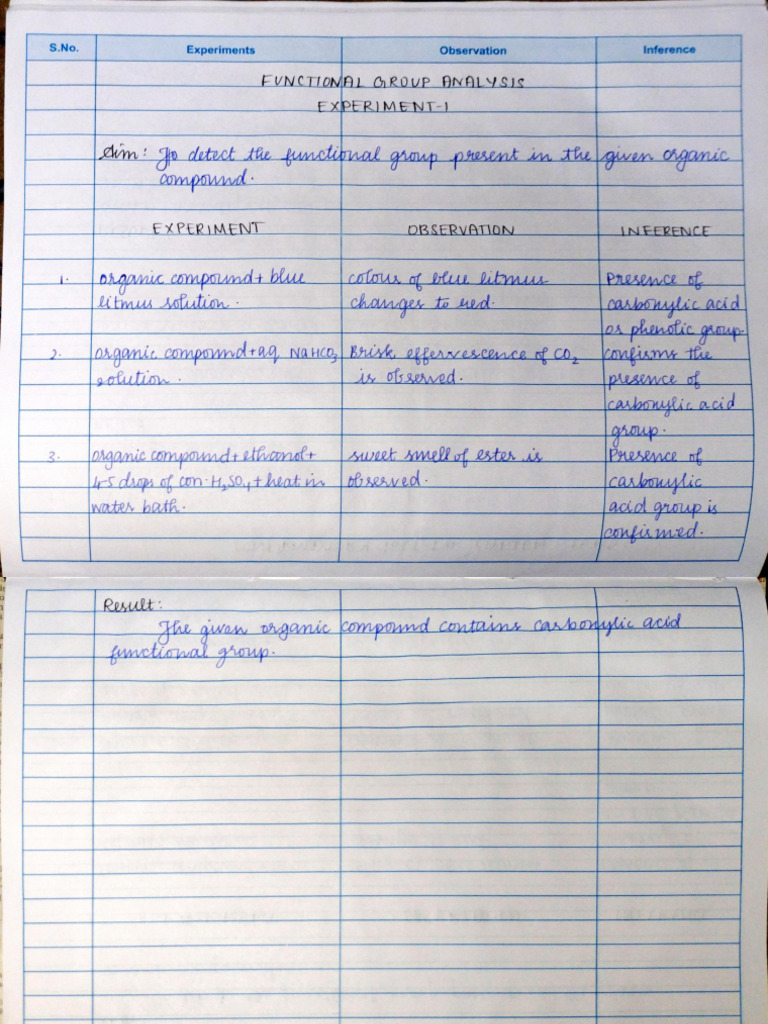 S.No. Experiments Observation Inference
FUNCTIONAL GROUP ANALYSIS
EXPERIMENT-1
Aim: To detect the functional group present in the given organic
compound.
EXPERIMENT OBSERVATION INFERENCE
1. organic compound + blue colour of blue litmus Presence of
litmus solution. changes to red. carbonylic acid
or phenolic group.
2. organic compound + aq NaHCO3 Brisk effervescence of CO2 confirms the
solution. is observed. presence of
carbonylic acid
group.
3. organic compound + ethanol + sweet smell of ester is Presence of
4-5 drops of con. H2SO4 + heat in observed. carbonylic
water bath. acid group is
confirmed.
Result:
The given organic compound contains carbonylic acid
functional group.